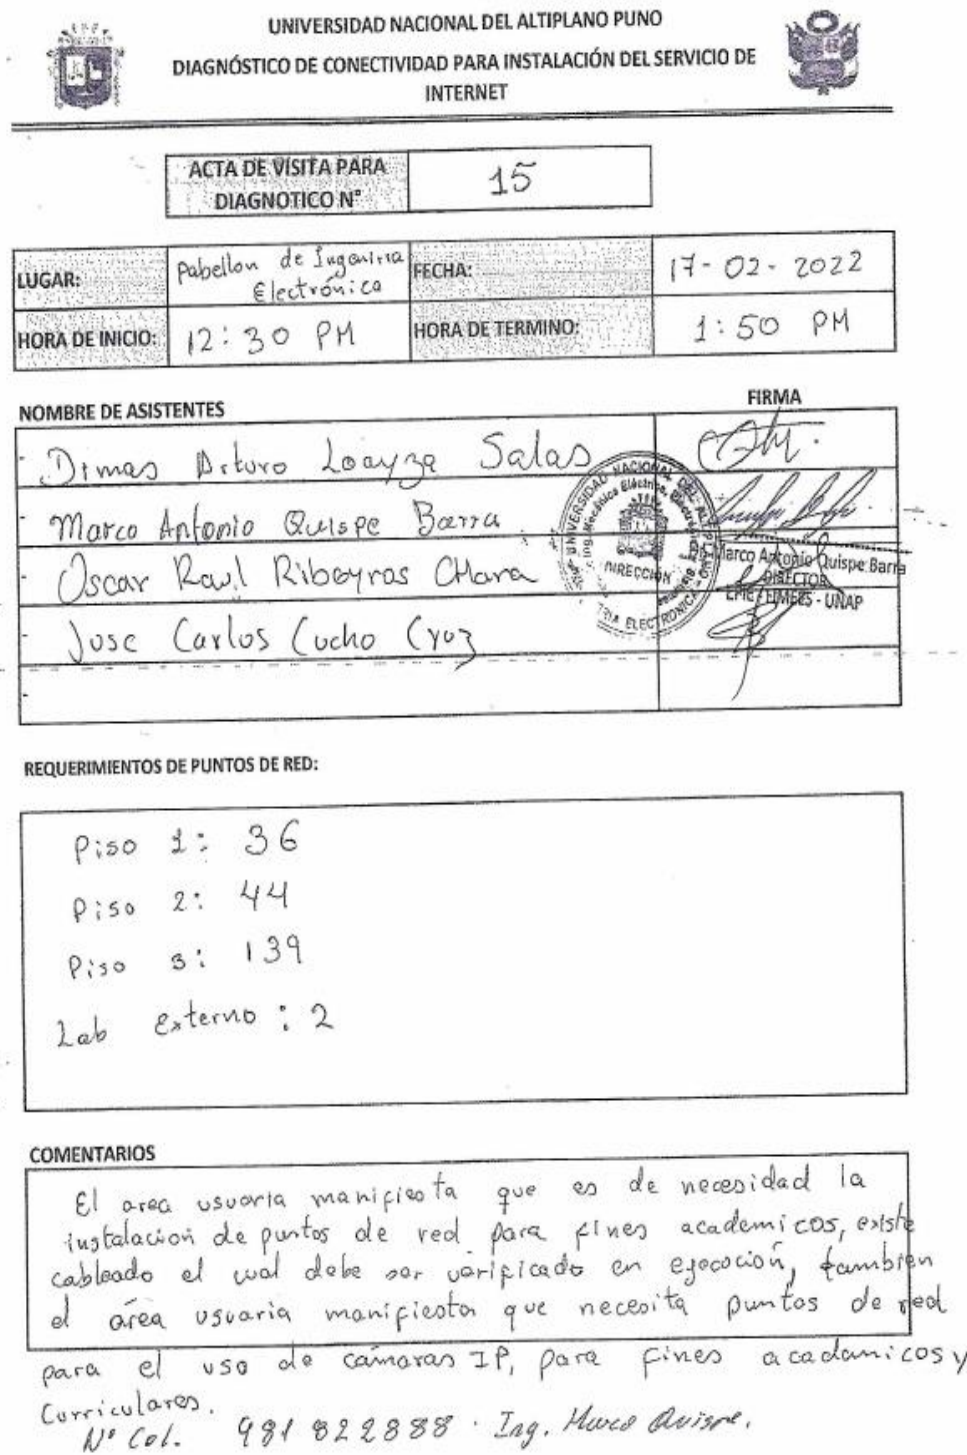 UNIVERSIDAD NACIONAL DEL ALTIPLANO PUNO
DIAGNÓSTICO DE CONECTIVIDAD PARA INSTALACIÓN DEL SERVICIO DE
INTERNET
ACTA DE VISITA PARA
DIAGNOTICO N° 15
LUGAR: Pabellon de Ingeniria Electrónica FECHA: 17-02-2022
HORA DE INICIO: 12:30 PM HORA DE TERMINO: 1:50 PM
NOMBRE DE ASISTENTES FIRMA
- Dimas Arturo Loayza Salas
- Marco Antonio Quispe Barra
Marco Antonio Quispe Barra
DIRECTOR
EPIE - FIMEES - UNAP
- Oscar Raul Ribeyros CHara
- Jose Carlos Cucho Cruz
-
UNIVERSIDAD NACIONAL DEL
DIRECCIÓN
REQUERIMIENTOS DE PUNTOS DE RED:
Piso 1: 36
Piso 2: 44
Piso 3: 139
Lab Externo: 2
COMENTARIOS
El area usuaria manifiesta que es de necesidad la
instalación de puntos de red para fines academicos, existe
cableado el cual debe ser verificado en ejecución, tambien
el área usuaria manifiesta que necesita puntos de red
para el uso de camaras IP, para fines academicos y
Curriculares.
N° Cel. 981 822888. Ing. Marco Quispe.